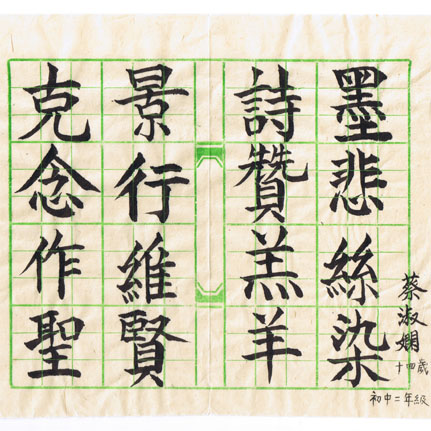 墨悲絲染
詩贊羔羊
景行維賢
克念作聖
蔡淑嫻
十四歲
初中二年級